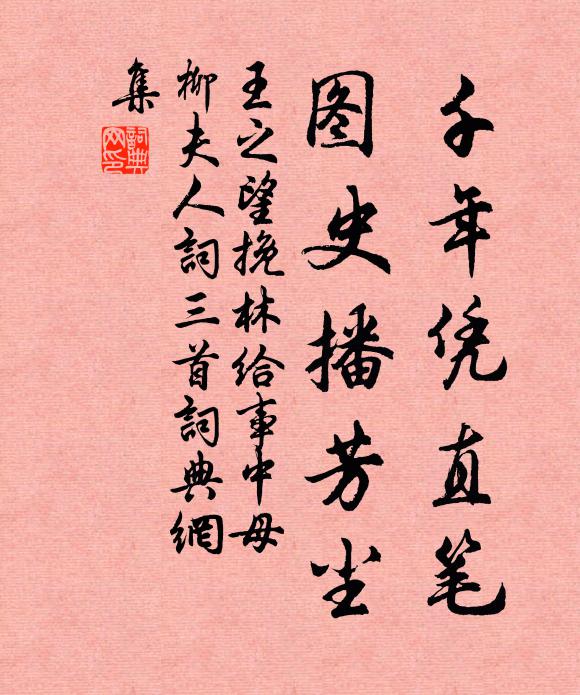 千年凭直笔
图史播芳尘
王之望挽林给事中母
柳夫人詞三首詞典網
集
詞典
网印